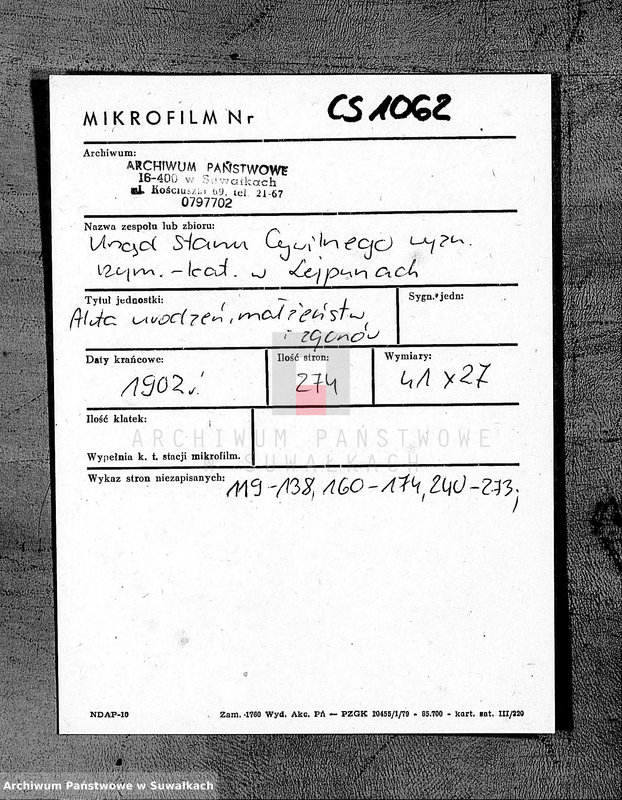 MIKROFILM Nr CS1062
Archiwum:
ARCHIWUM PAŃSTWOWE
16-400 w Suwałkach
ul. Kościuszki 69, tel. 21-67
0797702
Nazwa zespołu lub zbioru:
Urząd Stanu Cywilnego wyzn.
rzym.-kat. w Lejpunach
Tytuł jednostki:
Sygn. jedn:
Akta urodzeń, małżeństw
i zgonów
Daty krańcowe:
Ilość stron:
Wymiary:
1902r.
274
41 x 27
Ilość klatek:
ARCHIWUM PAŃSTWOWE
W SUWAŁKACH
Wypełnia k. t. stacji mikrofilm.
Wykaz stron niezapisanych:
119-138, 160-174, 240-273;
NDAP-10
Zam. 1760 Wyd. Akc. PŃ — PZGK 10455/1/79 - 85.700 - kart. sat. III/220
Archiwum Państwowe w Suwałkach